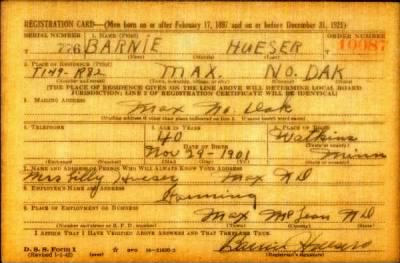 REGISTRATION CARD—(Men born on or after February 17, 1897 and on or before December 31, 1921)
SERIAL NUMBER 1. NAME (Print) ORDER NUMBER
T 226 BARNIE HUESER 10087
(First) (Middle) (Last)
2. PLACE OF RESIDENCE (Print)
T149-R82 MAX. NO. DAK
(Number and street) (Town, township, village, or city) (County) (State)
[THE PLACE OF RESIDENCE GIVEN ON THE LINE ABOVE WILL DETERMINE LOCAL BOARD
JURISDICTION; LINE 2 OF REGISTRATION CERTIFICATE WILL BE IDENTICAL]
3. MAILING ADDRESS
Max No. Dak
(Mailing address if other than place indicated on line 2. If same insert word same)
4. TELEPHONE 5. AGE IN YEARS 6. PLACE OF BIRTH
40 Watkins
DATE OF BIRTH (Town or county)
Nov 29-1901 Minn
(Exchange) (Number) (Mo.) (Day) (Yr.) (State or country)
7. NAME AND ADDRESS OF PERSON WHO WILL ALWAYS KNOW YOUR ADDRESS
Mrs Tilly Hueser Max ND
8. EMPLOYER'S NAME AND ADDRESS
Farming
9. PLACE OF EMPLOYMENT OR BUSINESS
Max McLean ND
(Number and street or R. F. D. number) (Town) (County) (State)
I AFFIRM THAT I HAVE VERIFIED ABOVE ANSWERS AND THAT THEY ARE TRUE.
D. S. S. Form 1
(Revised 1-1-42) (over)
Barnie Hueser
(Registrant's signature)